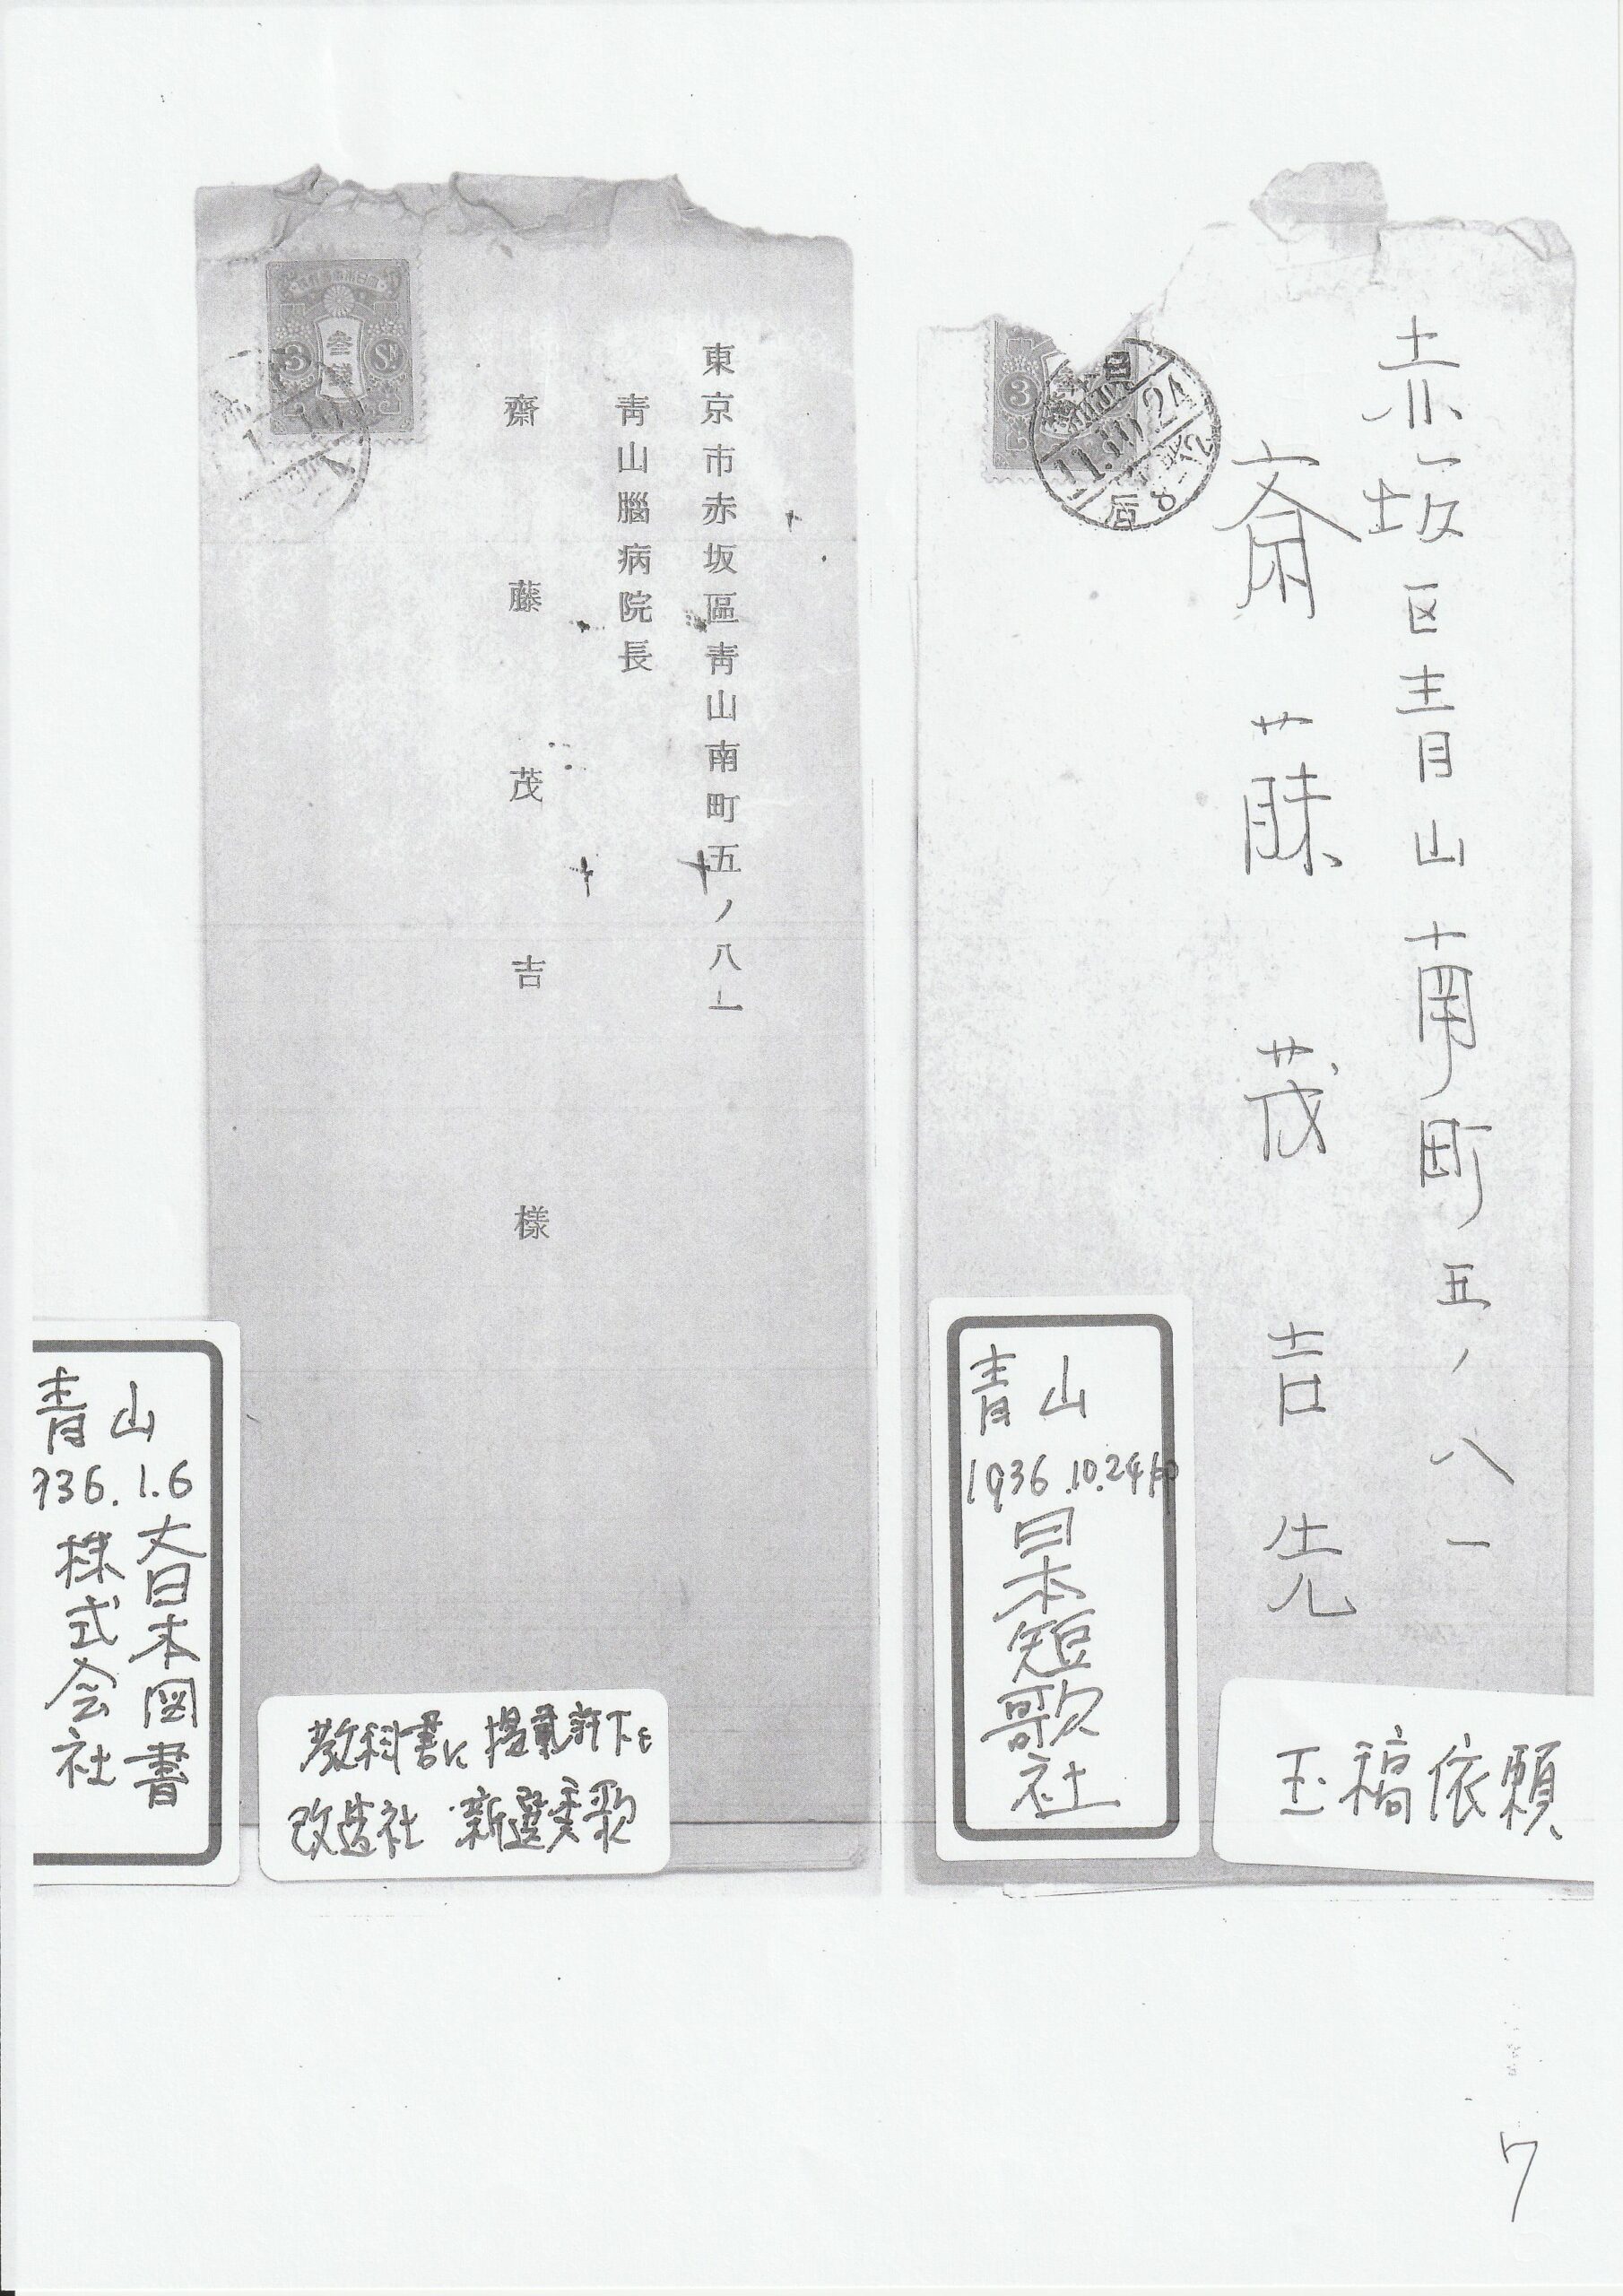 赤坂区青山南町五ノ八一
斎藤茂吉先
3
11.10.24
后8-12
青山
1936.10.24印
日本短歌社
玉稿依頼
東京市赤坂區靑山南町五ノ八一
靑山腦病院長
齋藤茂吉樣
3 参銭 Sn
青山
936.1.6
大日本図書
株式会社
教科書に掲載許下を
改造社 新選秀歌
7